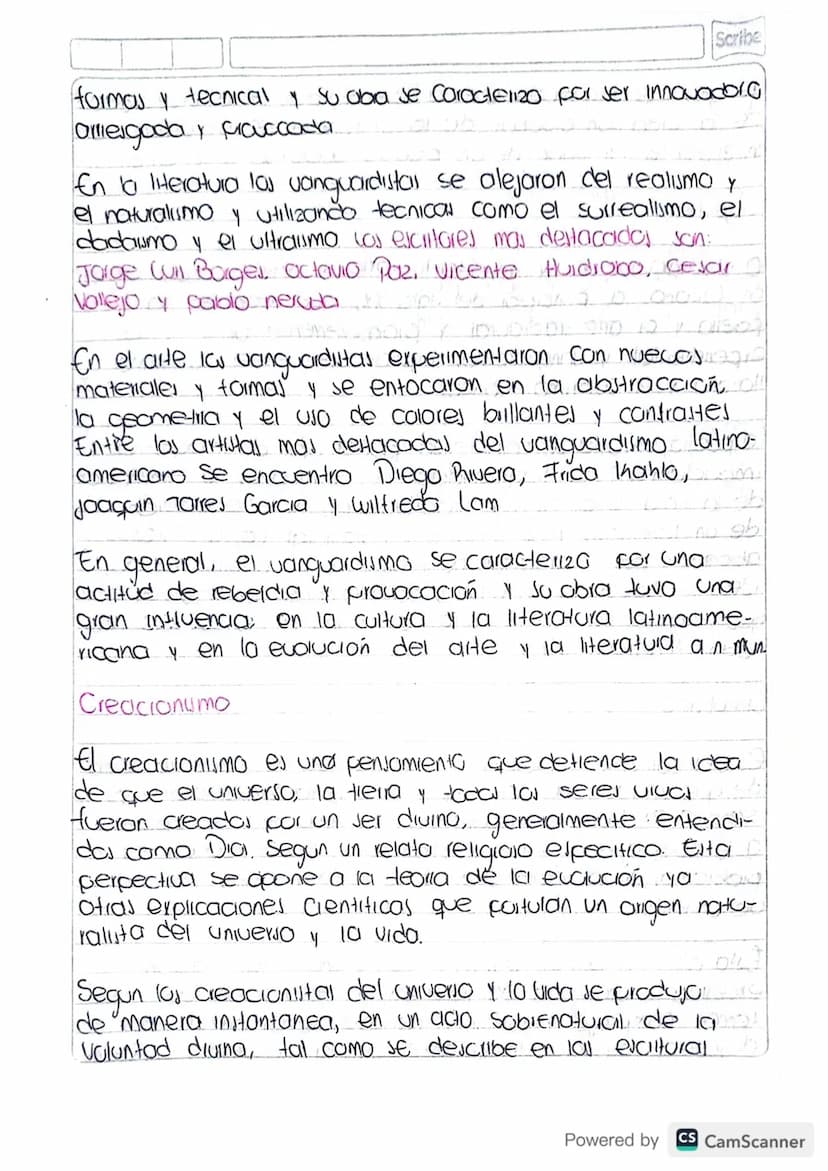 Scribe
formas y tecnicas y su obra se caracterizo por ser innovadora
arriesgada y
En la literatura los vanguardistas se alejaron del realismo y
el naturalismo y utilizando tecnicas como el surrealismo, el
dadaismo y el ultraismo los escritores mas destacados son:
Jorge Luis Borges, octavio Paz, vicente Huidrobo, cesar
vallejo y pablo neruda
En el arte los vanguardistas experimentaron con nuevos
materiales y formas y se enfocaron en la abstracción,
la geometria y el uso de colores brillantes y contrastes
Entre los artistas mas destacados del vanguardismo latino-
americano se encuentro Diego Rivera, Frida Kahlo,
Joaquin Torres Garcia y Wilfredo Lam
En general, el vanguardismo se caracterizo por una
actitud de rebeldia y provocación y su obra tuvo una
gran influencia en la cultura y la literatura latinoame-
ricana y en la evolución del arte y la literatura a n mun
Creacionismo
El creacionismo es una pensamiento que defiende la idea
de que el universo, la tierra y todos los seres vivos
fueron creados por un ser divino, generalmente entendi-
dos como Dios. Segun un relato religioso especifico. Esta
perpectiva se opone a la teoria de la evolución y a
otras explicaciones cientificas que postulan un origen natu-
ralista del universo y la vida.
Segun los creacionistas del universo y la vida se produjo
de manera instantanea, en un acto sobrenatural de la
voluntad divina, tal como se describe en las escrituras
Powered by CS CamScanner